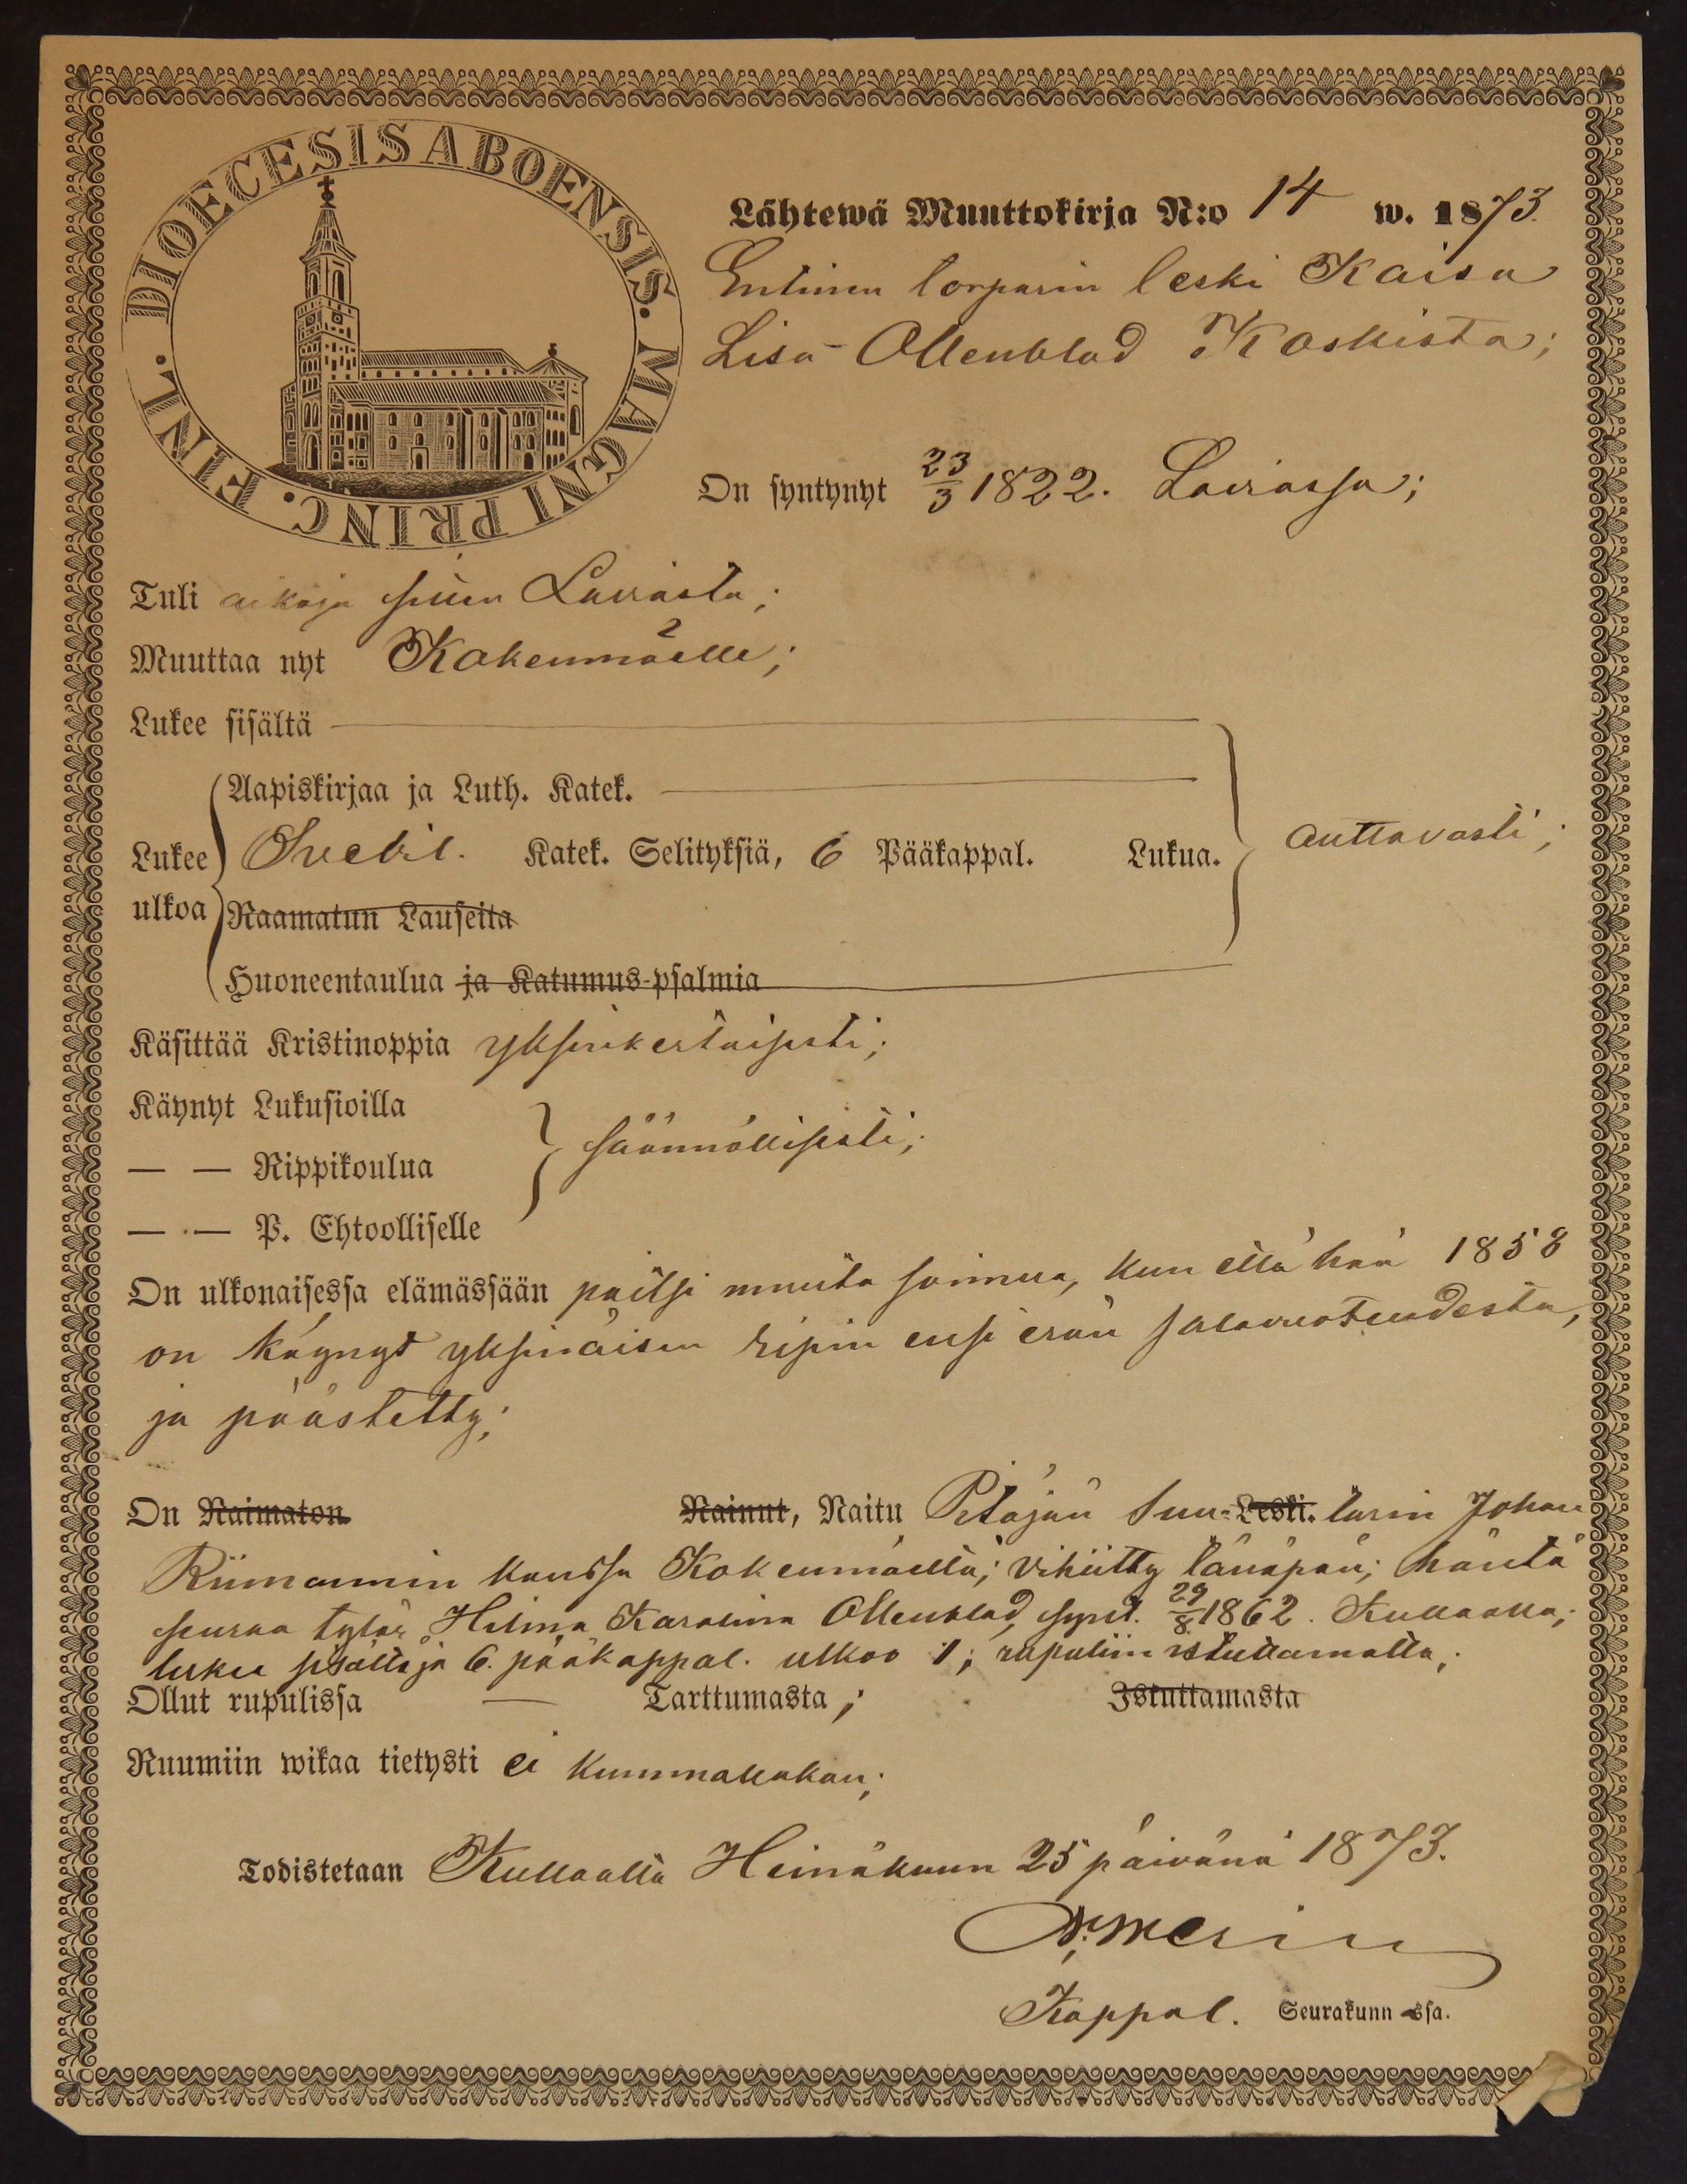 DIOECESIS ABOENSIS. MAGNI PRINC. FINL.
Lähtewä Muuttokirja N:o 14 w. 1873.
Entinen torparin leski Kaisa
Lisa Ollenblad Koskista;
On syntynyt 23/3 1822. Laviassa;
Tuli aikoja sitten Laviasta;
Muuttaa nyt Kokenmäelle;
Lukee sisältä
Aapiskirjaa ja Luth. Katek.
Lukee ulkoa Svebil. Katek. Selityksiä, 6 Pääkappal. Lukua. auttavasti;
Raamatun Lauseita
Huoneentaulua ja Katumus-psalmia
Käsittää Kristinoppia yksinkertaisesti;
Käynyt Lukusioilla
— — Rippikoulua säännöllisesti;
— — P. Ehtoolliselle
On ulkonaisessa elämässään paitsi muuta soimua, kun että hän 1858
on käynyt yksinäisen ripin ensi erän salavuoteudesta,
ja päästetty;
On Naimaton Nainut, Naitu Pitäjän Suu-Leski. tarin Johan
Riimannin kanssa Kokenmäellä; vihitty tänäpän; häntä
seuraa tytär Hilma Karolina Ollenblad, synt. 29/8 1862. Kullaalla;
lukee sisältä ja 6. pääkappal. ulkoo 1; rupuliin istuttamatta;
Ollut rupulissa — Tarttumasta; Istuttamasta
Ruumiin wikaa tietysti ei kummallakan;
Todistetaan Kullaalla Heinäkuun 25 päivänä 1873.
Kappal. Seurakunn ssa.